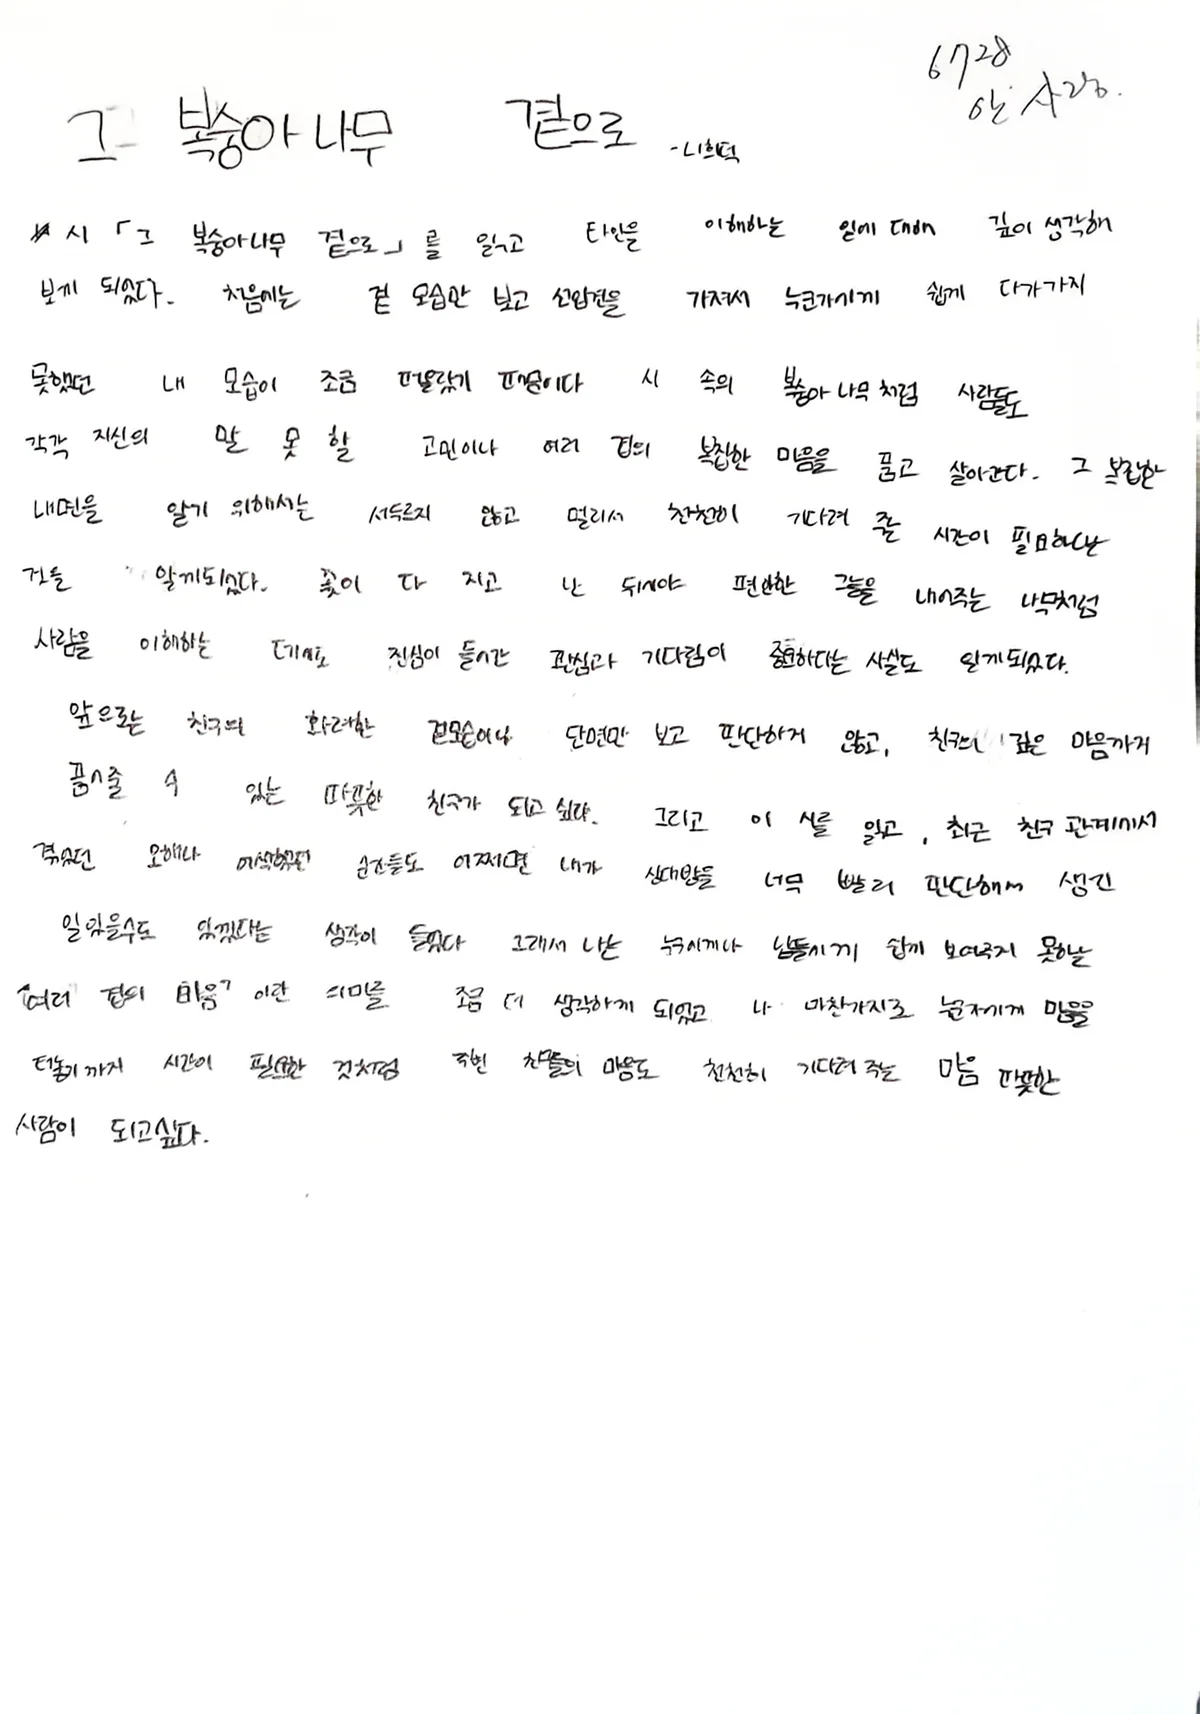 6728
안 사랑.
그 복숭아 나무 곁으로 -나희덕
시 「그 복숭아나무 곁으로」를 읽고 타인을 이해하는 일에 대해 깊이 생각해
보게 되었다. 처음에는 겉 모습만 보고 선입견을 가져서 누군가에게 쉽게 다가가지
못했던 내 모습이 조금 떠올랐기 때문이다 시 속의 복숭아 나무처럼 사람들도
각각 자신의 말 못 할 고민이나 여러 겹의 복잡한 마음을 품고 살아간다. 그 복잡한
내면을 알기 위해서는 서두르지 않고 멀리서 천천히 기다려 줄 시간이 필요하단
것을 알게되었다. 꽃이 다 지고 난 뒤에야 편안한 그늘을 내어주는 나무처럼
사람을 이해하는 데에도 진심이 들어간 관심과 기다림이 중요하다는 사실도 알게되었다.
앞으로는 친구의 화려한 겉모습이나 단면만 보고 판단하게 않고, 친구의 깊은 마음까지
품어줄 수 있는 따뜻한 친구가 되고 싶다. 그리고 이 시를 읽고, 최근 친구 관계에서
겪었던 오해나 어색했던 순간들도 어쩌면 내가 상대방을 너무 빨리 판단해서 생긴
일 있을수도 있겠다는 생각이 들었다 그래서 나는 누구에게나 남들에게 쉽게 보여주지 못하는
"여러 겹의 마음" 이란 의미를 조금 더 생각하게 되었고 나 마찬가지로 누군가에게 마음을
터놓기 까지 시간이 필요한 것처럼 친구들의 마음도 천천히 기다려 주는 마음 따뜻한
사람이 되고싶다.